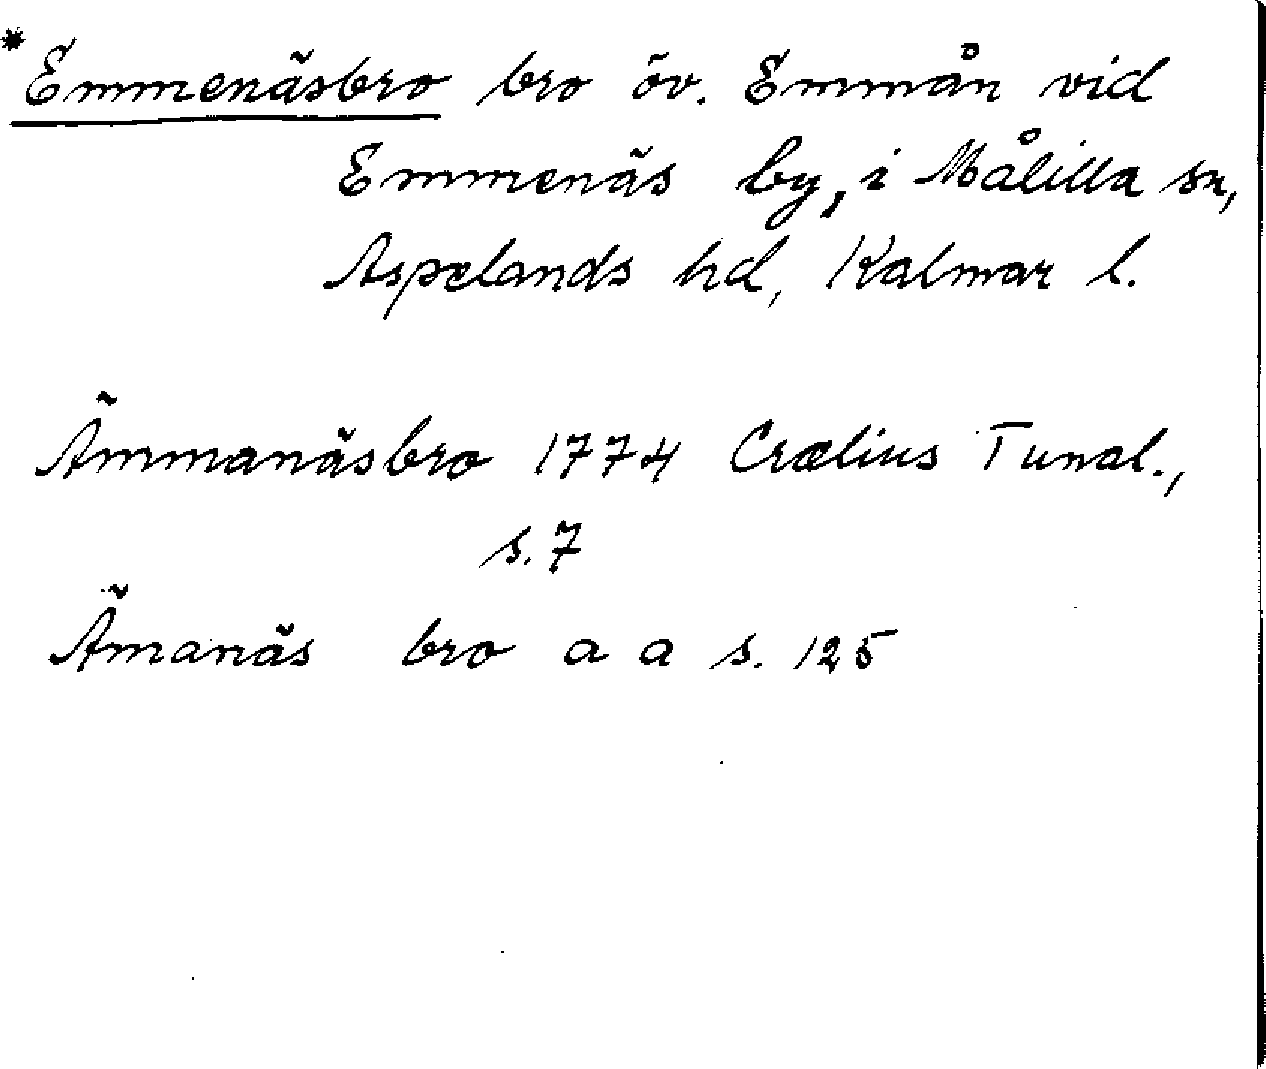 *Emmenäsbro bro öv. Emmån vid
Emmenäs by, i Målilla sn,
Aspelands hd, Kalmar l.
Ämmanäsbro 1774 Crælius Tunal.,
s. 7
Ämanäs bro a a s. 125